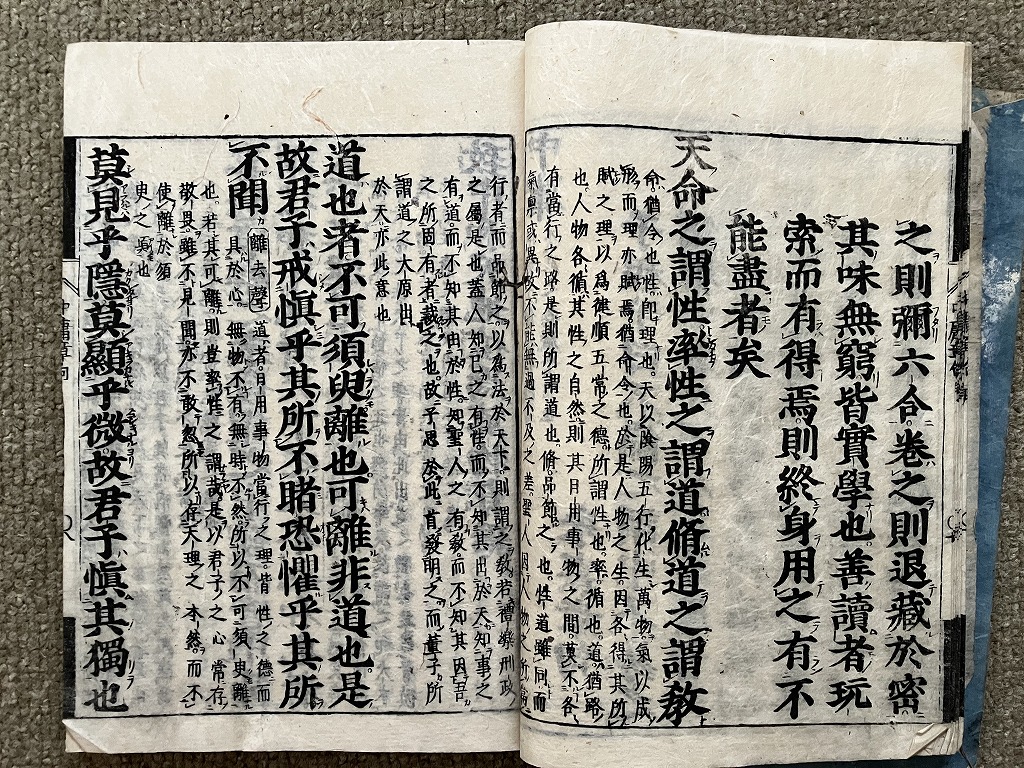 之則彌六合卷之則退藏於密
其味無窮皆實學也善讀者玩
索而有得焉則終身用之有不
能盡者矣
天命之謂性率性之謂道脩道之謂教
命猶令也性卽理也天以陰陽五行化生萬物氣以成
形而理亦賦焉猶命令也於是人物之生因各得其所
賦之理以爲健順五常之德所謂性也率循也道猶路
也人物各循其性之自然則其日用事物之間莫不各
有當行之路是則所謂道也脩品節之也性道雖同而
氣稟或異故不能無過不及之差聖人因人物之所當
行者而品節之以爲法於天下則謂之教若禮樂刑政
之屬是也蓋人知己之有性而不知其出於天知事之
有道而不知其由於性知聖人之有教而不知其因吾
之所固有者裁之也故子思於此首發明之而董子所
謂道之大原出
於天亦此意也
道也者不可須臾離也可離非道也是
故君子戒愼乎其所不睹恐懼乎其所
不聞
離去聲道者日用事物當行之理皆性之德而
具於心無物不有無時不然所以不可須臾離
也若其可離則豈率性之謂哉是以君子之心常存
敬畏雖不見聞亦不敢忽所以存天理之本然而不
使離於須
臾之頃也
莫見乎隱莫顯乎微故君子愼其獨也